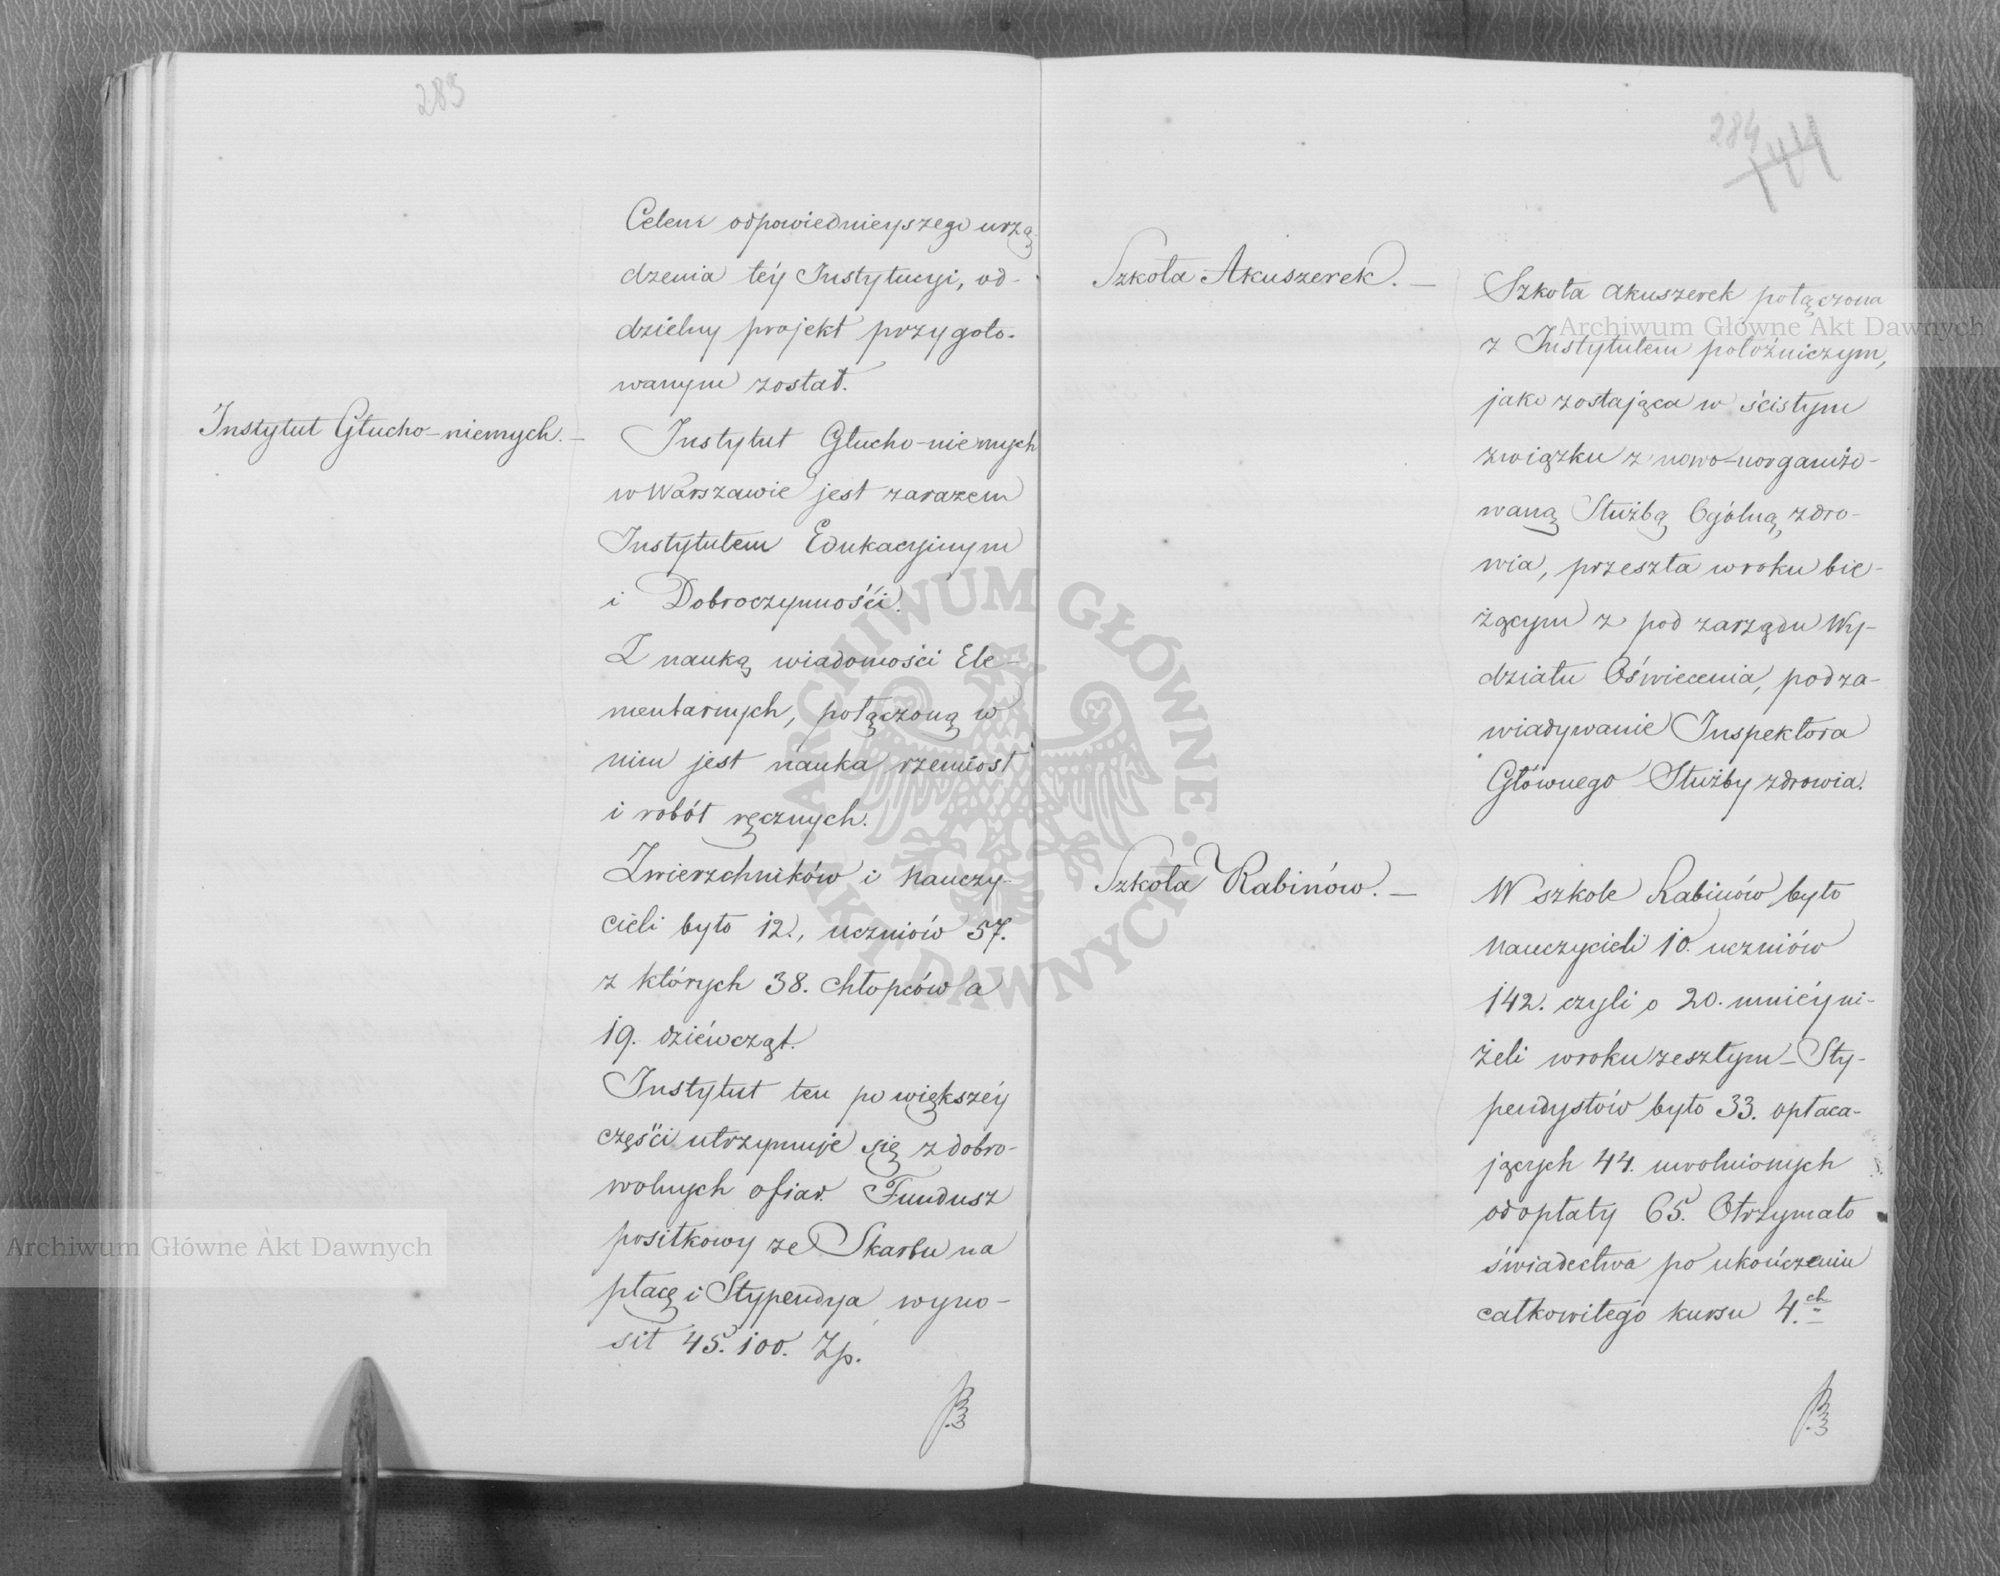 283
Celem odpowiednieyszego urzą-
dzenia téy Instytucyi, od-
dzielny projekt przygoto-
wanym został.
Instytut Głucho-niemych. —
Instytut Głucho-niemych
w Warszawie jest zarazem
Instytutem Edukacyjnym
i Dobroczynności.
Z nauką wiadomości Ele-
mentarnych, połączoną w
nim jest nauka rzemiosł
i robót ręcznych.
Zwierzchników i Nauczy-
cieli było 12., uczniów 57.
z których 38. chłopców a
19. dziéwcząt.
Instytut ten po większéy
części utrzymuje się z dobro-
wolnych ofiar. Fundusz
positkowy ze Skarbu na
płacę i Stypendya wyno-
sił 45.100. Zp.
284
144
Szkoła Akuszerek. —
Szkoła akuszerek połączona
z Instytutem położniczym,
jako zostająca w ścisłym
związku z nowo-uorganizo-
waną Służbą Ogólną zdro-
wia, przeszła w roku bie-
żącym z pod zarządu Wy-
działu Oświecenia, pod za-
wiadywanie Inspektora
Głównego Służby zdrowia.
Szkoła Rabinów. —
W szkole Rabinów było
Nauczycieli 10. uczniów
142. czyli o 20. mniéy ni-
żeli w roku zeszłym – Sty-
pendystów było 33. opłaca-
jących 44. uwolnionych
od opłaty 65. Otrzymało
świadectwa po ukończeniu
całkowitego kursu 4.ch
Archiwum Główne Akt Dawnych
Archiwum Główne Akt Dawnych
ARCHIWUM GŁÓWNE AKT DAWNYCH